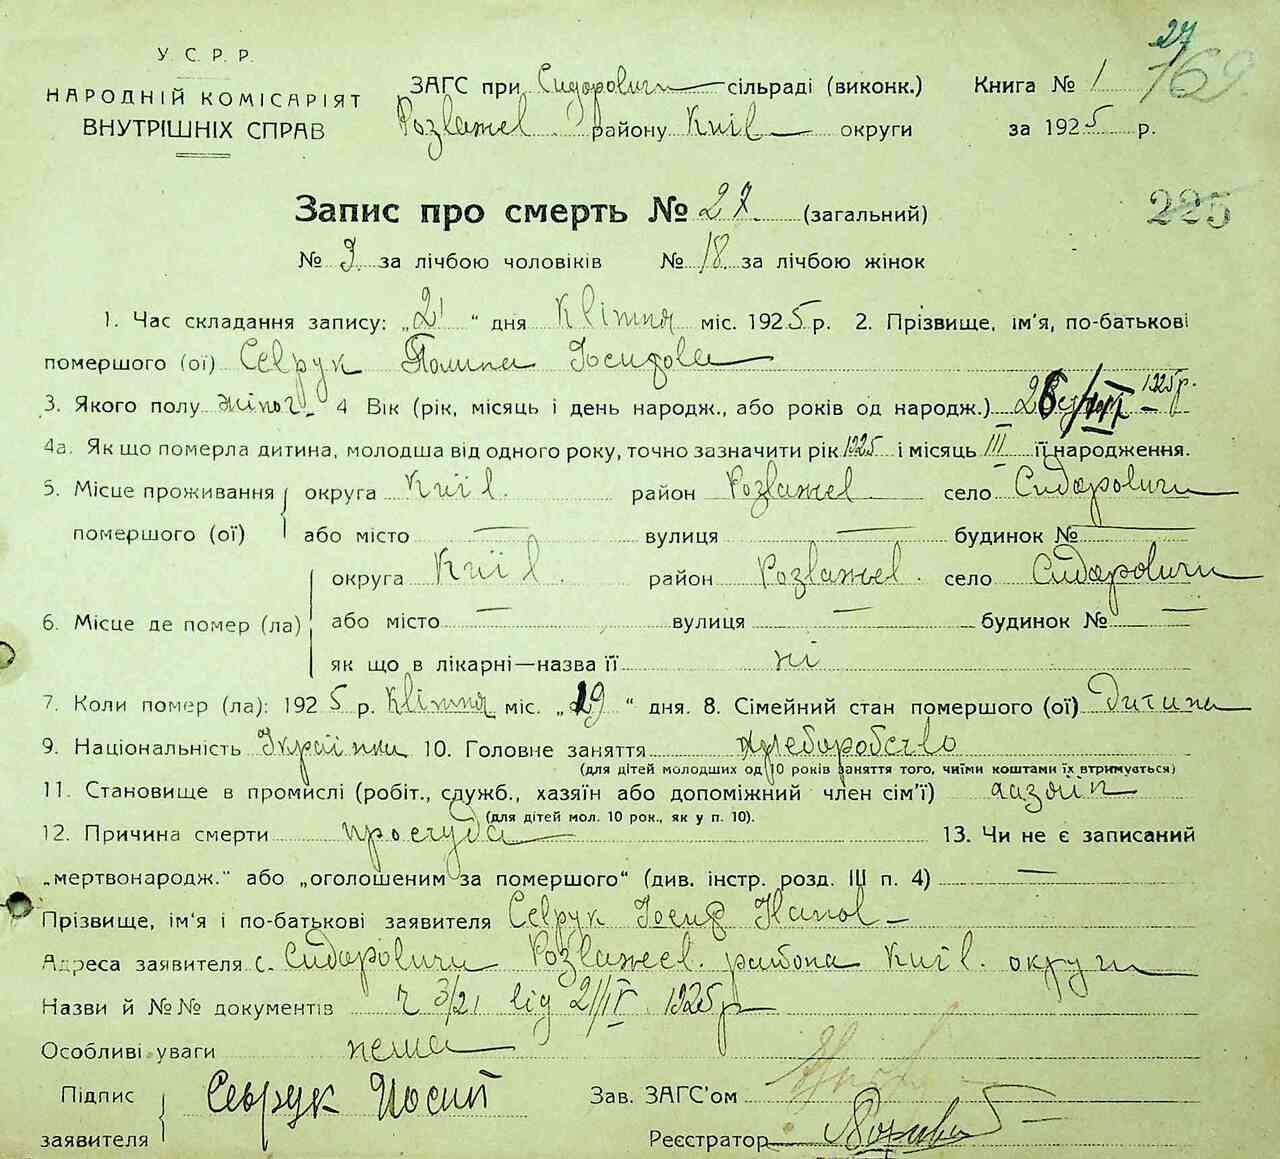 27
169
У. С. Р. Р.
НАРОДНІЙ КОМІСАРІЯТ
ВНУТРІШНІХ СПРАВ
ЗАГС при Сидорович сільраді (виконк.)
Розважев району Київ округи
Книга № 1
за 1925 р.
Запис про смерть № 27 (загальний)
225
№ 9 за лічбою чоловіків № 18 за лічбою жінок
1. Час складання запису: „21" дня Квітня міс. 1925 р. 2. Прізвище, ім'я, по-батькові
помершого (ої) Севрук Полина Іосифова
3. Якого полу жіноч 4 Вік (рік, місяць і день народж., або років од народж.) 26/III 1925р.
4а. Як що померла дитина, молодша від одного року, точно зазначити рік 1925 і місяць III її народження.
5. Місце проживання помершого (ої) округа Київ. район Розважев село Сидоровичи
або місто — вулиця — будинок № —
6. Місце де помер (ла) округа Київ. район Розважев. село Сидоровичи
або місто — вулиця — будинок № —
як що в лікарні—назва її ні
7. Коли помер (ла): 1925 р. Квітня міс. „19" дня. 8. Сімейний стан помершого (ої) Дитина
9. Національність Українка 10. Головне заняття хлеборобство
(для дітей молодших од 10 років заняття того, чиїми коштами їх втримується)
11. Становище в промислі (робіт., служб., хазяїн або допоміжний член сім'ї) хазяїн
(для дітей мол. 10 рок., як у п. 10).
12. Причина смерти простуда 13. Чи не є записаний
„мертвонародж." або „оголошеним за помершого" (див. інстр. розд. III п. 4) —
Прізвище, ім'я і по-батькові заявителя Севрук Іосиф Іванов
Адреса заявителя с. Сидоровичи Розважев. района Київ. округи
Назви й №№ документів ч 3/21 від 21/IV 1925р
Особливі уваги нема
Підпис заявителя Севрук Иосип
Зав. ЗАГС'ом
Реєстратор